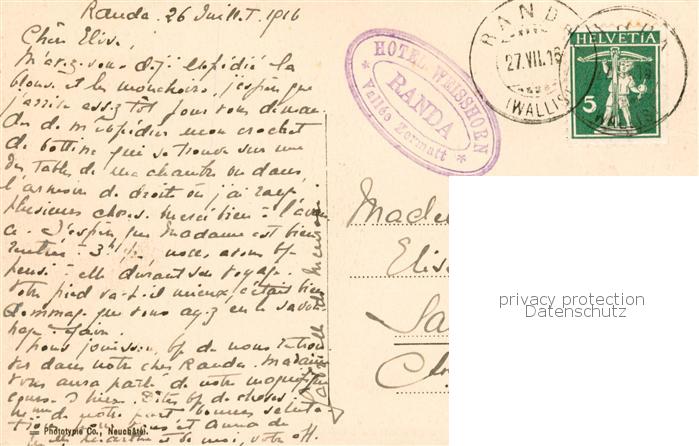 Randa. 26 Juillet 1916
Chère Elise,
M'avez-vous déjà expédié la
blouse et les mouchoirs, j'espère que
j'arrive assez tôt pour vous deman-
der de m'expédier mon crochet
de bottine qui se trouve sur une
des tables de ma chambre ou dans
l'armoire de droite où j'ai rangé
plusieurs choses. Merci bien à l'avan-
ce. J'espère que Madame est bien
rentrée 3h ½, nous avons bp
pensé à elle durant son voyage.
Votre pied va-t-il mieux, c'était bien
dommage que vous ayez eu le
Nous jouissons bp de nous retrou-
ver dans notre cher Randa. Madame
vous aura parlé de notre magnifique
course d'hier. Dites bp de choses
de notre part, bonnes saluta-
tions pour vous et Anna de
et de moi, votre aff.
HOTEL WEISSHORN
RANDA
Vallée Zermatt
RANDA
27.VII.16
(WALLIS)
HELVETIA
5
WALLIS
Made
Elis
Sa
privacy protection
Datenschutz
Phototypie Co., Neuchâtel.